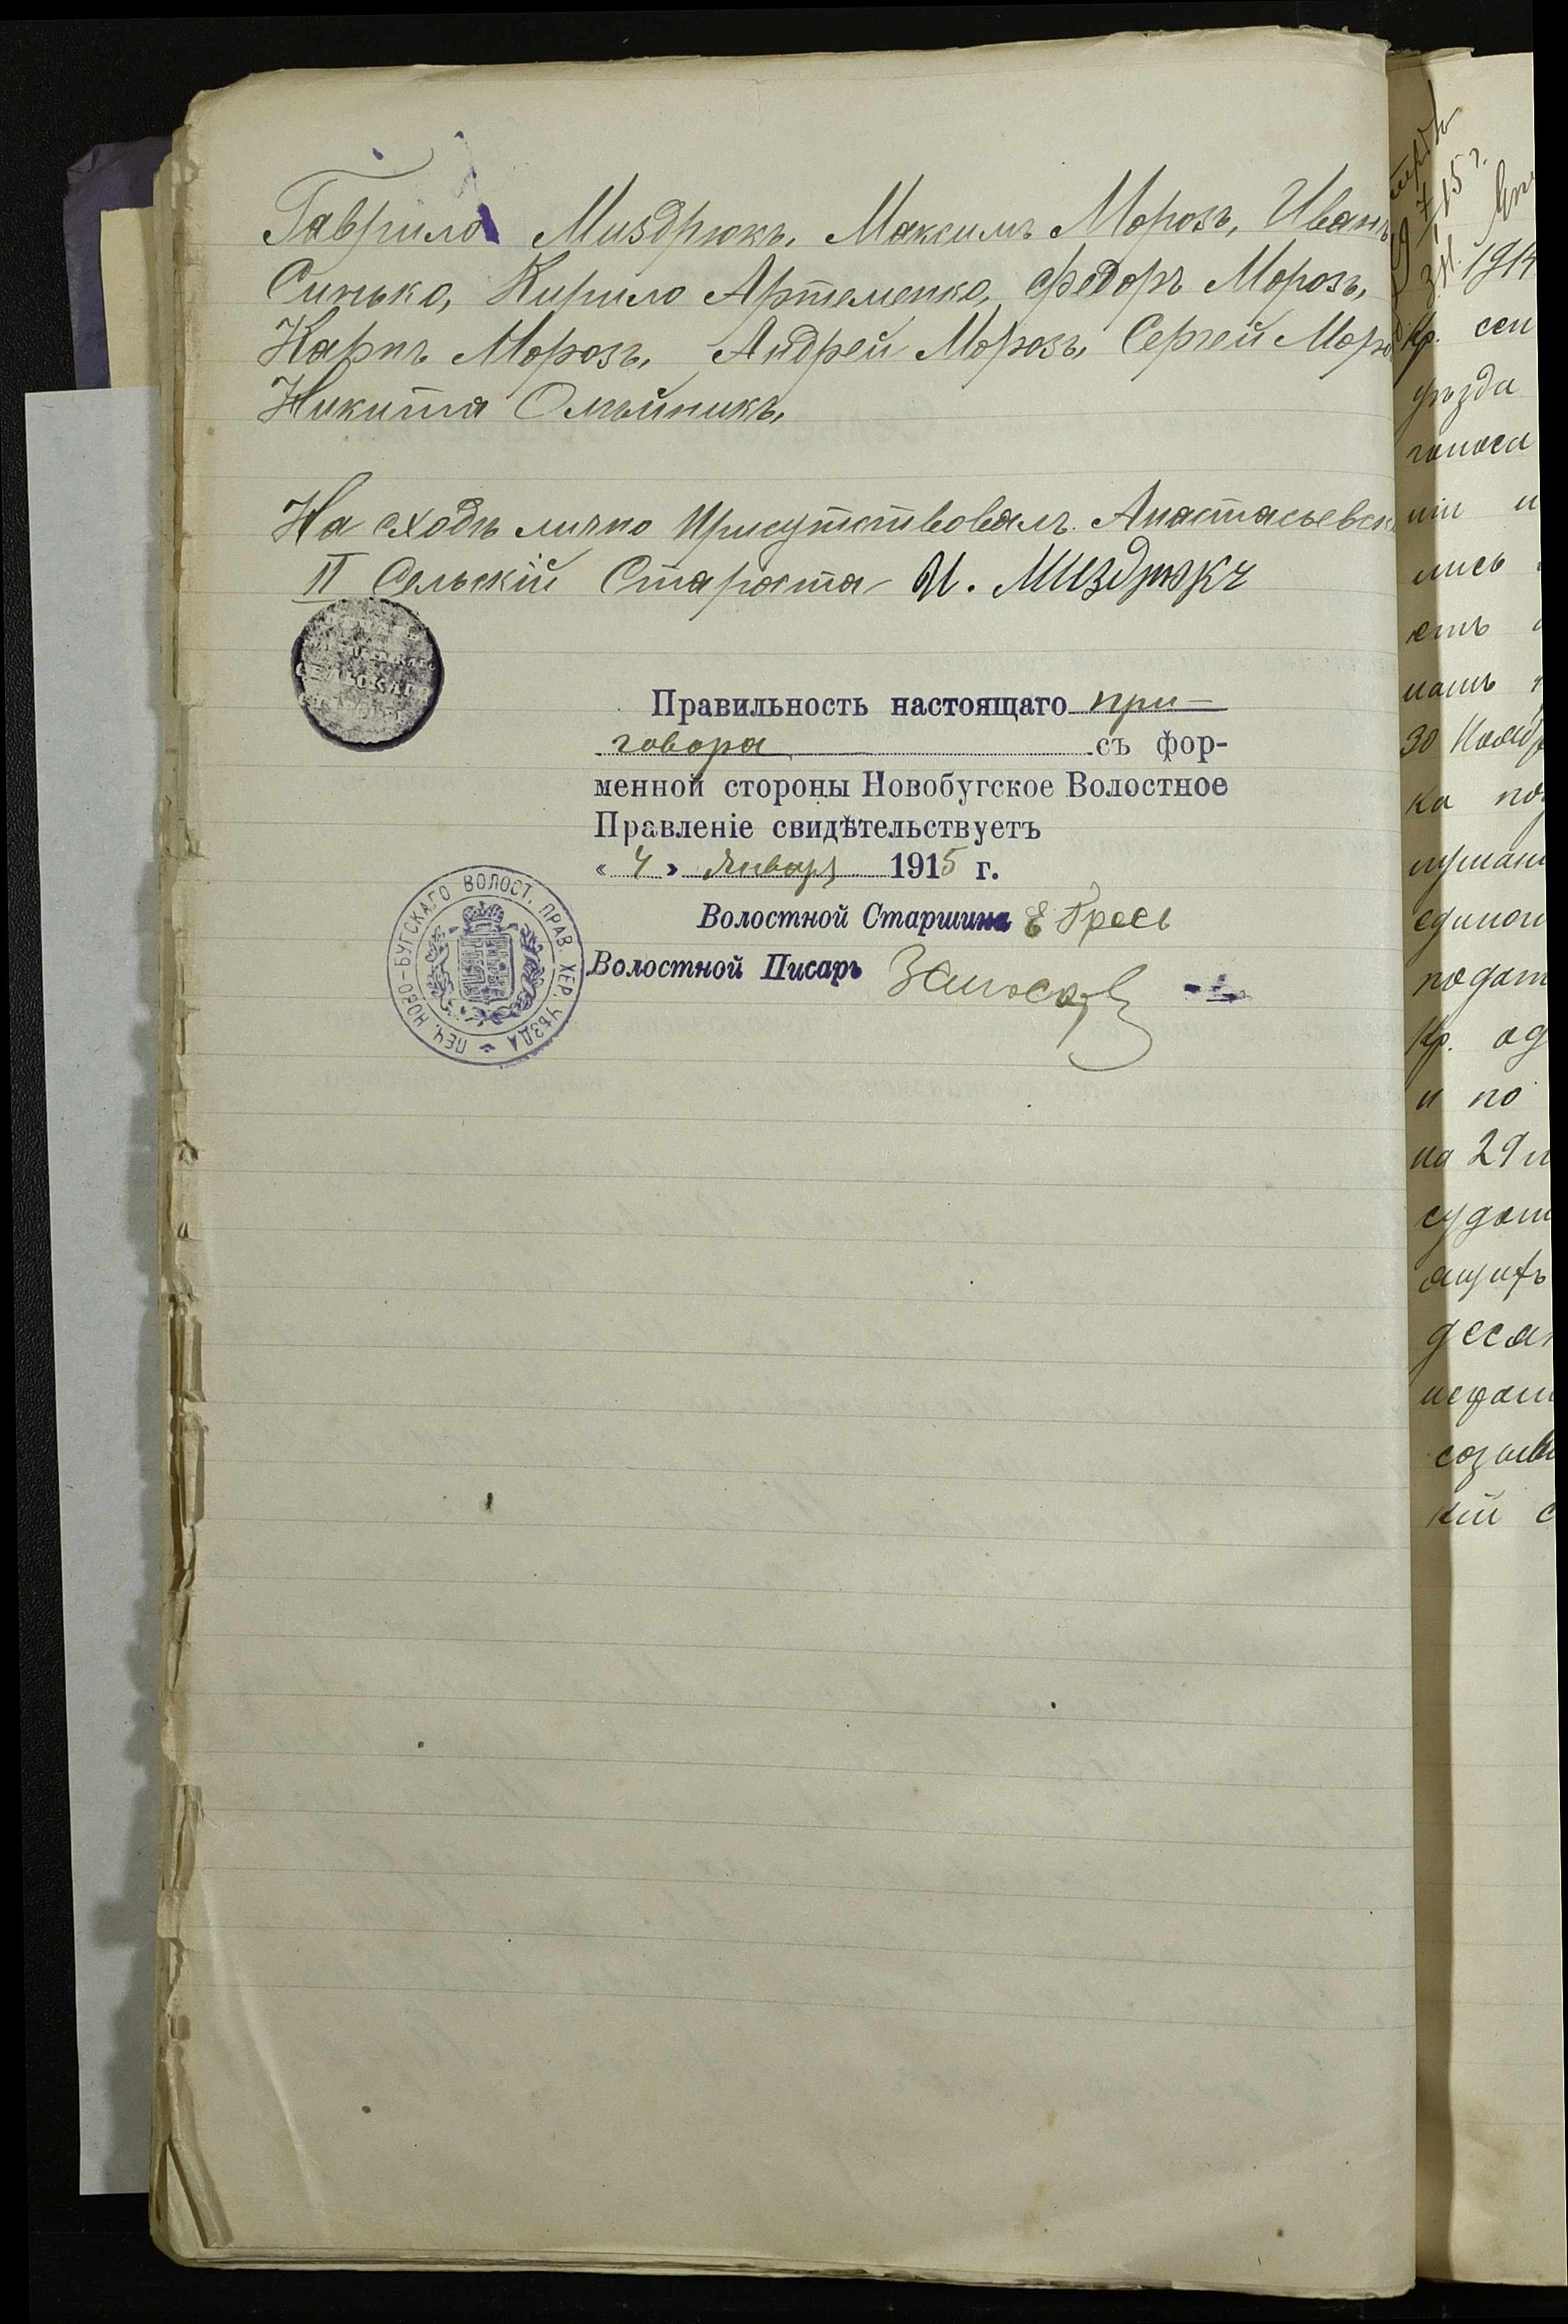 Гаврило Миздрюкъ, Максимъ Морозъ, Иванъ
Синько, Кирило Артеменко, Федоръ Морозъ,
Карпъ Морозъ, Андрей Морозъ, Сергей Моро
Никита Олѣйникъ,
На сходѣ лично присутствовалъ Анастасьевск
II Сельскій Староста И. Миздрюкъ
СЕЛЬСКАГО
Правильность настоящаго при-
говора съ фор-
менной стороны Новобугское Волостное
Правленіе свидѣтельствуетъ
« 4 » Января 1915 г.
Волостной Старшина Е Гресь
Волостной Писарь
ПЕЧ. НОВО-БУГСКАГО ВОЛОСТ. ПРАВ. ХЕР. УѢЗДА
15 г.
1914
Кр. сел
уѣзда
голоса
ніи и
лись
30 Ноябр
ка
единог
подат
Кр. од
и по
на 29
судом
десят
созыв
кій с